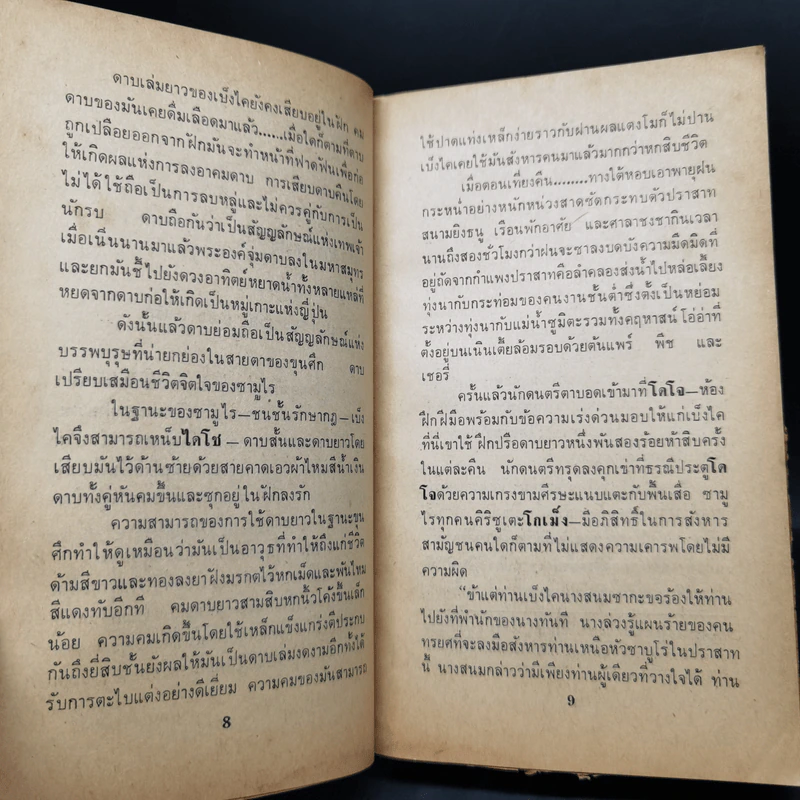 ดาบเล่มยาวของเบ็งไคยังคงเสียบอยู่ในฝัก คม
ดาบของมันเคยดื่มเลือดมาแล้ว......เมื่อใดก็ตามที่ดาบ
ถูกเปลือยออกจากฝักมันจะทำหน้าที่ฟาดฟันเพื่อก่อ
ให้เกิดผลแห่งการลงอาคมดาบ การเสียบดาบคืนโดย
ไม่ได้ใช้ถือเป็นการลบหลู่และไม่ควรคู่กับการเป็น
นักรบ ดาบถือกันว่าเป็นสัญญลักษณ์แห่งเทพเจ้า
เมื่อเนิ่นนานมาแล้วพระองค์จุ่มดาบลงในมหาสมุทร
และยกมันชี้ไปยังดวงอาทิตย์หยาดน้ำทั้งหลายแหล่ที่
หยดจากดาบก่อให้เกิดเป็นหมู่เกาะแห่งญี่ปุ่น
ดังนั้นแล้วดาบย่อมถือเป็นสัญญลักษณ์แห่ง
บรรพบุรุษที่น่ายกย่องในสายตาของขุนศึก ดาบ
เปรียบเสมือนชีวิตจิตใจของซามูไร
ในฐานะของซามูไร—ชนชั้นรักษากฎ—เบ็ง
ไคจึงสามารถเหน็บไดโช — ดาบสั้นและดาบยาวโดย
เสียบมันไว้ด้านซ้ายด้วยสายคาดเอวผ้าไหมสีน้ำเงิน
ดาบทั้งคู่หันคมขึ้นและซุกอยู่ในฝักลงรัก
ความสามารถของการใช้ดาบยาวในฐานะขุน
ศึกทำให้ดูเหมือนว่ามันเป็นอาวุธที่ทำให้ถึงแก่ชีวิต
ด้ามสีขาวและทองลงยาฝังมรกตไว้หกเม็ดและพันไหม
สีแดงทับอีกที คมดาบยาวสามสิบหกนิ้วโค้งขึ้นเล็ก
น้อย ความคมเกิดขึ้นโดยใช้เหล็กแข็งแกร่งตีประกบ
กันถึงยี่สิบชั้นยังผลให้มันเป็นดาบเล่มงดงามอีกทั้งได้
รับการตะไบแต่งอย่างดีเยี่ยม ความคมของมันสามารถ
8
ใช้ปาดแท่งเหล็กง่ายราวกับฝานผลแตงโมก็ไม่ปาน
เบ็งไคเคยใช้มันสังหารคนมาแล้วมากกว่าหกสิบชีวิต
เมื่อตอนเที่ยงคืน........ทางใต้หอบเอาพายุฝน
กระหน่ำอย่างหนักหน่วงสาดซัดกระทบตัวปราสาท
สนามยิงธนู เรือนพักอาศัย และศาลาชงชากินเวลา
นานถึงสองชั่วโมงกว่าฝนจะซาลงบดบังความมืดมิดที่
อยู่ถัดจากกำแพงปราสาทคือลำคลองส่งน้ำไปหล่อเลี้ยง
ทุ่งนากับกระท่อมของคนงานชั้นต่ำซึ่งตั้งเป็นหย่อม
ระหว่างทุ่งนากับแม่น้ำซูมิดะรวมทั้งคฤหาสน์โอ่อ่าที่
ตั้งอยู่บนเนินเตี้ยล้อมรอบด้วยต้นแพร์ พีช และ
เชอรี่
ครั้นแล้วนักดนตรีตาบอดเข้ามาที่โดโจ—ห้อง
ฝึกฝีมือพร้อมกับข้อความเร่งด่วนมอบให้แก่เบ็งไค
ที่นี่เขาใช้ฝึกปรือดาบยาวหนึ่งพันสองร้อยห้าสิบครั้ง
ในแต่ละคืน นักดนตรีทรุดลงคุกเข่าที่ธรณีประตูโด
โจด้วยความเกรงขามศีรษะแนบแตะกับพื้นเสื่อ ซามู
ไรทุกคนคิริซูเตะโกเม็ง—มีอภิสิทธิ์ในการสังหาร
สามัญชนคนใดก็ตามที่ไม่แสดงความเคารพโดยไม่มี
ความผิด
“ข้าแต่ท่านเบ็งไคนางสนมซากะขจร้องให้ท่าน
ไปยังที่พำนักของนางทันที นางล่วงรู้แผนร้ายของคน
ทรยศที่จะลงมือสังหารท่านเหนือหัวซาบูโร่ในปราสาท
นี้ นางสนมกล่าวว่ามีเพียงท่านผู้เดียวที่วางใจได้ ท่าน
9